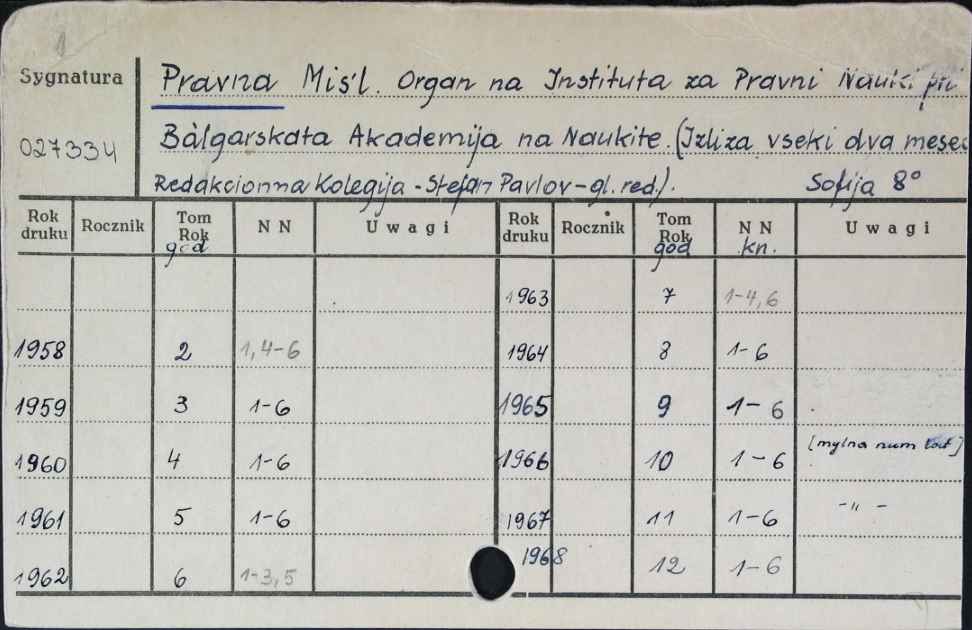 1
Sygnatura
027334
Pravna Miśl. Organ na Instituta za Pravni Nauki pri
Bàlgarskata Akademija na Naukite. (Izliza vseki dva mesec
Redakcionna Kolegija - Stefan Pavlov - gl. red.). Sofija 8°
Rok druku Rocznik Tom Rok god NN Uwagi Rok druku Rocznik Tom Rok god NN kn. Uwagi
1963 7 1-4,6
1958 2 1,4-6 1964 8 1-6
1959 3 1-6 1965 9 1-6
1960 4 1-6 1966 10 1-6 [mylna num
1961 5 1-6 1967 11 1-6 -"-
1962 6 1-3,5 1968 12 1-6